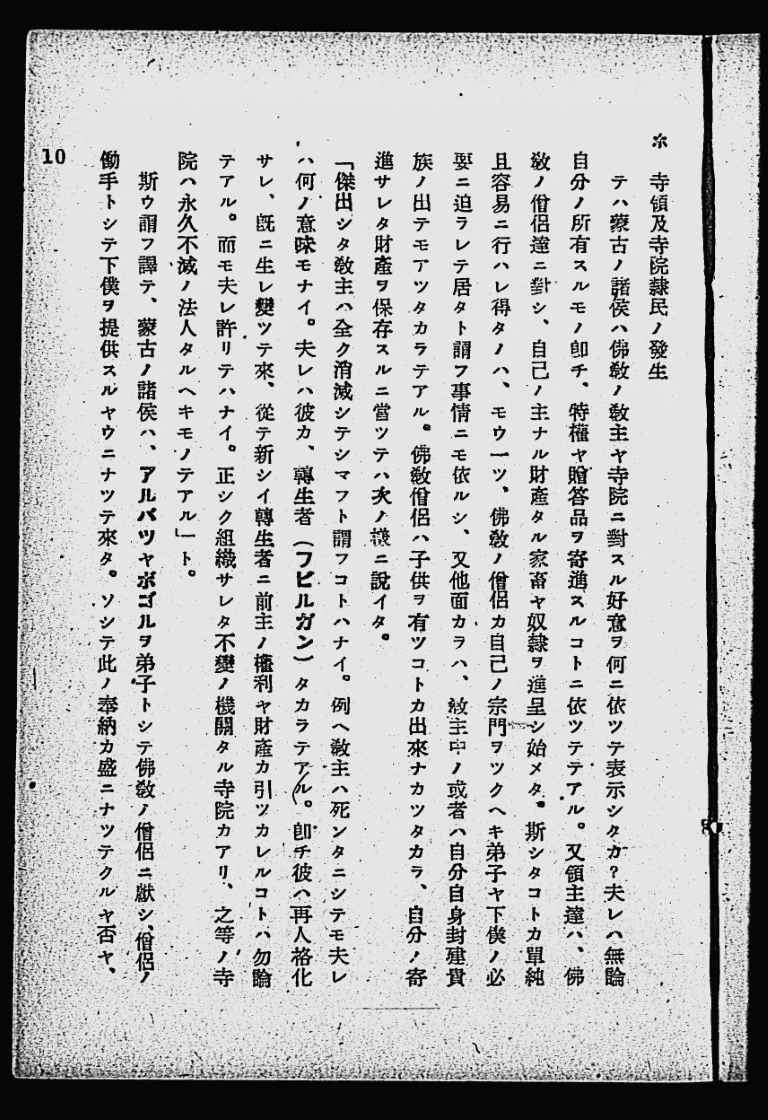 ＊ 寺領及寺院隷民ノ發生
テハ蒙古ノ諸侯ハ佛敎ノ敎主ヤ寺院ニ對スル好意ヲ何ニ依ツテ表示シタカ？夫レハ無論
自分ノ所有スルモノ卽チ、特權ヤ贈答品ヲ寄進スルコトニ依ツテテアル。又領主達ハ、佛
敎ノ僧侶達ニ對シ、自己ノ主ナル財產タル家畜ヤ奴隷ヲ進呈シ始メタ。斯シタコトカ單純
且容易ニ行ハレ得タノハ、モウ一ツ、佛敎ノ僧侶カ自己ノ宗門ヲツクヘキ弟子ヤ下僕ノ必
要ニ迫ラレテ居タト謂フ事情ニモ依ルシ、又他面カラハ、敎主中ノ或者ハ自分自身封建貴
族ノ出テモアツタカラテアル。佛敎僧侶ハ子供ヲ有ツコトカ出來ナカツタカラ、自分ノ寄
進サレタ財產ヲ保存スルニ當ツテハ次ノ樣ニ說イタ。
「傑出シタ敎主ハ全ク消滅シテシマフト謂フコトハナイ。例ヘ敎主ハ死ンタニシテモ夫レ
ハ何ノ意味モナイ。夫レハ彼カ、轉生者（フビルガン）タカラテアル。卽チ彼ハ再人格化
サレ、旣ニ生レ變ツテ來、從テ新シイ轉生者ニ前主ノ權利ヤ財產カ引ツカレルコトハ勿論
テアル。而モ夫レ許リテハナイ。正シク組織サレタ不變ノ機關タル寺院カアリ、之等ノ寺
院ハ永久不滅ノ法人タルヘキモノテアル」ト。
斯ウ謂フ譯テ、蒙古ノ諸侯ハ、アルバツヤボゴルヲ弟子トシテ佛敎ノ僧侶ニ獻シ、僧侶ノ
働手トシテ下僕ヲ提供スルヤウニナツテ來タ。ソシテ此ノ奉納カ盛ニナツテクルヤ否ヤ、
10